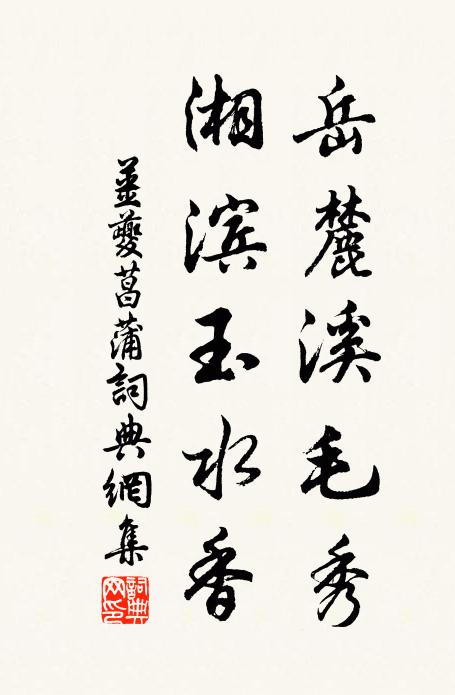 岳麓溪毛秀
湘滨玉水香
姜夔菖蒲詞典網集
詞典网印